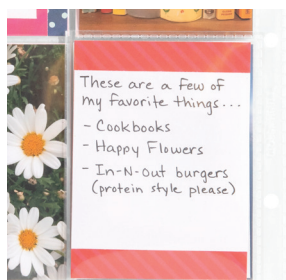 These are a few of
my favorite things...
- Cookbooks
- Happy Flowers
- In-N-Out burgers
(protein style please)